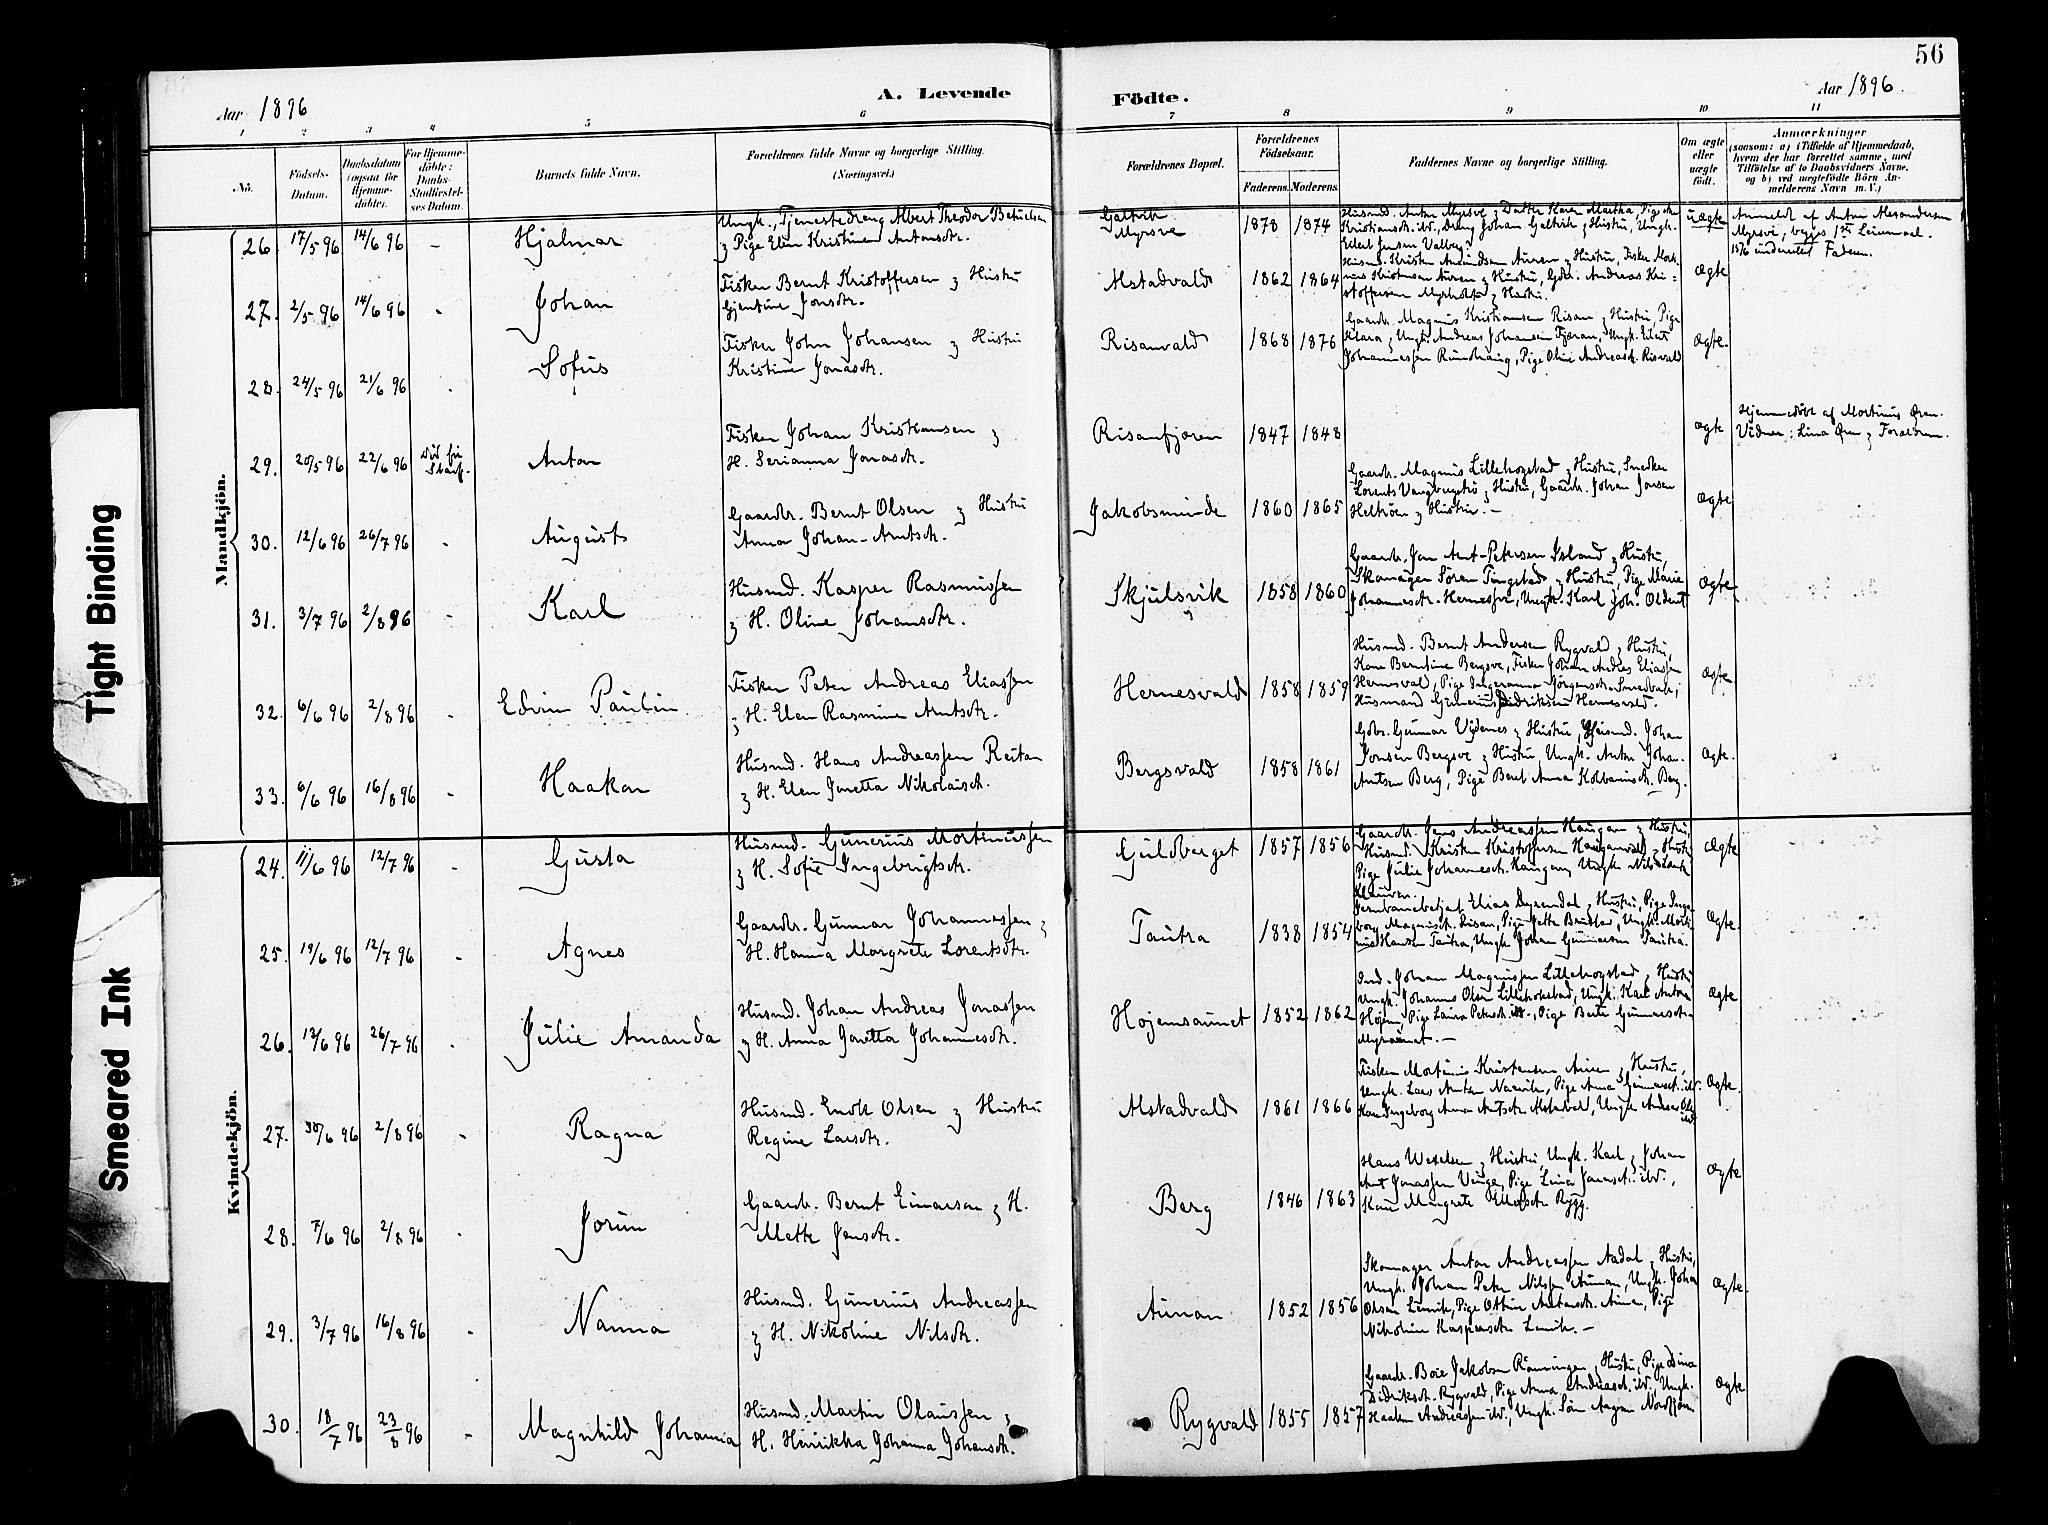 56
Aar 1896
A. Levende
Födte.
Aar 1896
1 2 3 4 5 6 7 8 9 10 11
No.
Födsels-Datum.
Daabsdatum (ogsaa for Hjemmedöbte).
For Hjemmedöbte: Daabs-Stadfæstelses Datum.
Barnets fulde Navn.
Forældrenes fulde Navne og borgerlige Stilling.
(Næringsvei.)
Forældrenes Bopæl.
Forældrenes Födselsaar.
Faderens. Moderens.
Faddernes Navne og borgerlige Stilling.
Om ægte eller uægte födt.
Anmærkninger
(saasom: a) i Tilfælde af Hjemmedaab, hvem der har forrettet samme, med Tilföielse af to Daabsvidners Navne, og b) ved uægtefödte Börn Anmelderens Navn m. V.)
Mandkjön.
26. 17/5 96 14/6 96 - Hjalmar
Ungk., Tjenestedreng Albert Theodor Betuelsen
& Pige Elin Kristine Antonsdtr.
Galtvik
Myrsve
1878 1874
Husmd. Anton Myrsve & Datter Karen Martha, Pige
Kristiansdtr. ibd., Dreng Johan Galtvik & Hustru, Ungk.
uægte
Anmeldt af Anton Alexandersen
Myrsve, begges 1ste Leiermaal.
27. 2/5 96 14/6 96 - Johan
Fisker Bernt Kristoffersen & Hustru
Gjertine Jonsdtr.
Alstadvald 1862 1864
stoffersen Myrholt & Hustru.
ægte
28. 24/5 96 21/6 96 - Sofus
Fisker John Johansen & Hustru
Kristine Jonasdtr.
Risanvald 1868 1876
Gaardbr. Magnus Kristiansen Risan & Hustru, Pige
Klara & Ungk. Andreas Johansen Fjæran, Ungk. Eilert
Johannessen Rundhaug, Pige Oline Andreasdtr. Risvald
ægte.
29. 20/5 96 22/6 96 Anton
Fisker Johan Kristiansen &
H. Serianna Jonasdtr.
Risanfjæren 1847 1848
ægte
Hjemmedöbt af Mortinus Øren.
Vidner: Lina Øren & Forældrene.
30. 12/6 96 26/7 96 - August
Gaardbr. Bernt Olsen & Hustru
Anna Johan-Arntsdtr.
Jakobsminde 1860 1865
Gaardbr. Magnus Lillehogstad & Hustru, Snedker
Lorents Vangbergströ & Hustru, Gaardbr. Johan Jonsen
Heltröen & Hustru. -
ægte
31. 3/7 96 2/8 96 - Karl
Husmd. Kasper Rasmussen
& H. Oline Johansdtr.
Skjulsvik 1858 1860
Gaardbr. Jon Arnt-Petersen Island & Hustru,
Skomager Sören Tingstad & Hustru, Pige Marie
Johannesdtr. Hernessve, Ungk. Karl Joh. Oldernt
ægte
32. 6/6 96 2/8 96 - Edvin Paulin
Fisker Peter Andreas Eliassen
& H. Elen Rasmine Arntsdtr.
Hernesvald 1858 1859
Husmd. Bernt Andersen Rygvald & Hustru,
Kone Berntine Bergsve, Fisker Johan Andreas Eliassen
Hernesvald, Pige Ingeranna Jörgensdtr. Smedvald,
Husmand Gunerius Didriksen Hernesvald.
ægte.
33. 6/6 96 16/8 96 - Haakon
Husmd. Hans Andreassen Reitan
& H. Elen Jonetta Nikolaisdtr.
Bergsvald 1858 1861
Gdbr. Gunnar Vidnes & Hustru, Husmd. Johan
Jonsen Bergsve & Hustru, Ungk. Anton Johan-
Arntsen Berg, Pige Beret Anna Kolbeinsdtr. Berg.
ægte.
Kvindekjön.
24. 11/6 96 12/7 96 - Gusta
Husmd. Gunerius Mortinussen
& H. Sofie Ingebrigtsdtr.
Guldberget 1857 1856
Gaardbr. Jens Andreassen Haugan & Hustru,
Husmd. Kristen Kristoffersen Hauganvald & Hustru
Pige Julie Johannesdtr. Haugan, Ungk. Nils
ægte
25. 19/6 96 12/7 96 - Agnes
Gaardbr. Gunnar Johannessen &
H. Hanna Margrete Lorentsdtr.
Tautra 1838 1854
Jernbanebetjent Elias Dyrendal & Hustru, Pige Inge-
borg Magnusdtr. Risan, Pige Jette Brustad, Ungk. Morti-
nus Hansen Tautra, Ungk. Johan Gunnarsen Tautra.
ægte.
26. 13/6 96 26/7 96 - Julie Amanda
Husmd. Johan Andreas Jonassen
& H. Anna Jonetta Johannesdtr.
Hojemsaunet 1852 1862
Inds. Johan Magnussen Lillehogstad & Hustru
Ungk. Johannes Olsen Lillehokstad, Ungk. Karl Anton
Hojem, Pige Laura Petersdtr. ibd., Pige Berte Gunnersdtr.
Myraunet. -
ægte
27. 30/6 96 2/8 96 - Ragna
Husmd. Enok Olsen & Hustru
Regine Larsdtr.
Alstadvald 1861 1866
Fisker Mortinus Kristensen Auren & Hustru,
Ungk. Lars Anton Naavik, Pige Anna Gunnersdtr. ibd.
Kone Ingeborg Anna Arntsdtr. Alstadvald, Ungk. Anders Olsen ibd.
ægte.
28. 7/6 96 2/8 96 - Jorun
Gaardbr. Bernt Einarson & H.
Mette Jensdtr.
Berg 1846 1863
Hans Wexelsen & Hustru, Ungk. Karl & Johan
Arnt Jonassen Vinge, Pige Lina Jonasdtr. ibd.,
Kone Margrete Olsdtr. Rygg.
ægte
29. 3/7 96 16/8 96 - Nanna
Husmd. Gunerius Andreassen
& H. Nikoline Nilsdtr.
Aunan 1852 1856
Skomager Anton Andreassen Aadal & Hustru,
Ungk. Johan Peter Nilssen Aunan, Ungk. Johan
Olsen Leinvik, Pige Ottine Antonsdtr. Aunan, Pige
Nikoline Kaspersdtr. Leinvik. -
ægte.
30. 18/7 96 23/8 96 - Magnhild Johanna
Husmd. Martin Olaussen &
H. Henrikka Johanna Johansdtr.
Rygvald 1855 1857
Gaardbr. Boie Jakobsen Rönningen & Hustru, Pige Dina
Didriksdtr. Rygvald, Pige Anna Andreasdtr. ibd., Ungk.
Haakon Andreassen ibd., Ungk.
ægte
Tight Binding
Smeared Ink